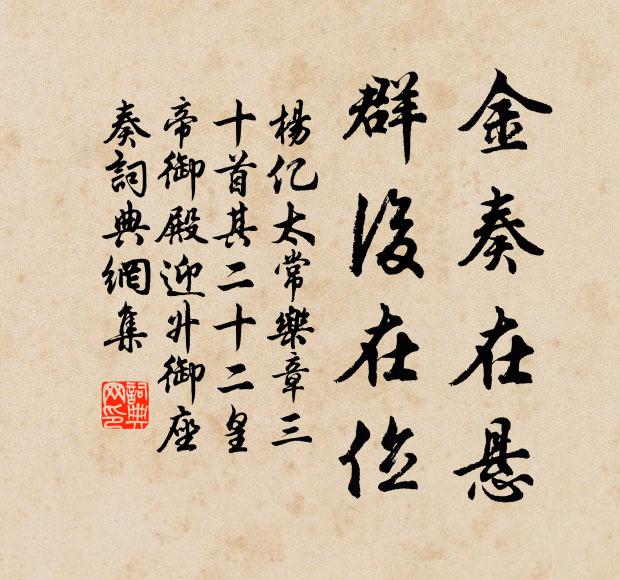 金奏在悬
群後在位
楊亿太常樂章三
十首其二十二皇
帝御殿迎升御座
奏詞典網集
詞典
网印